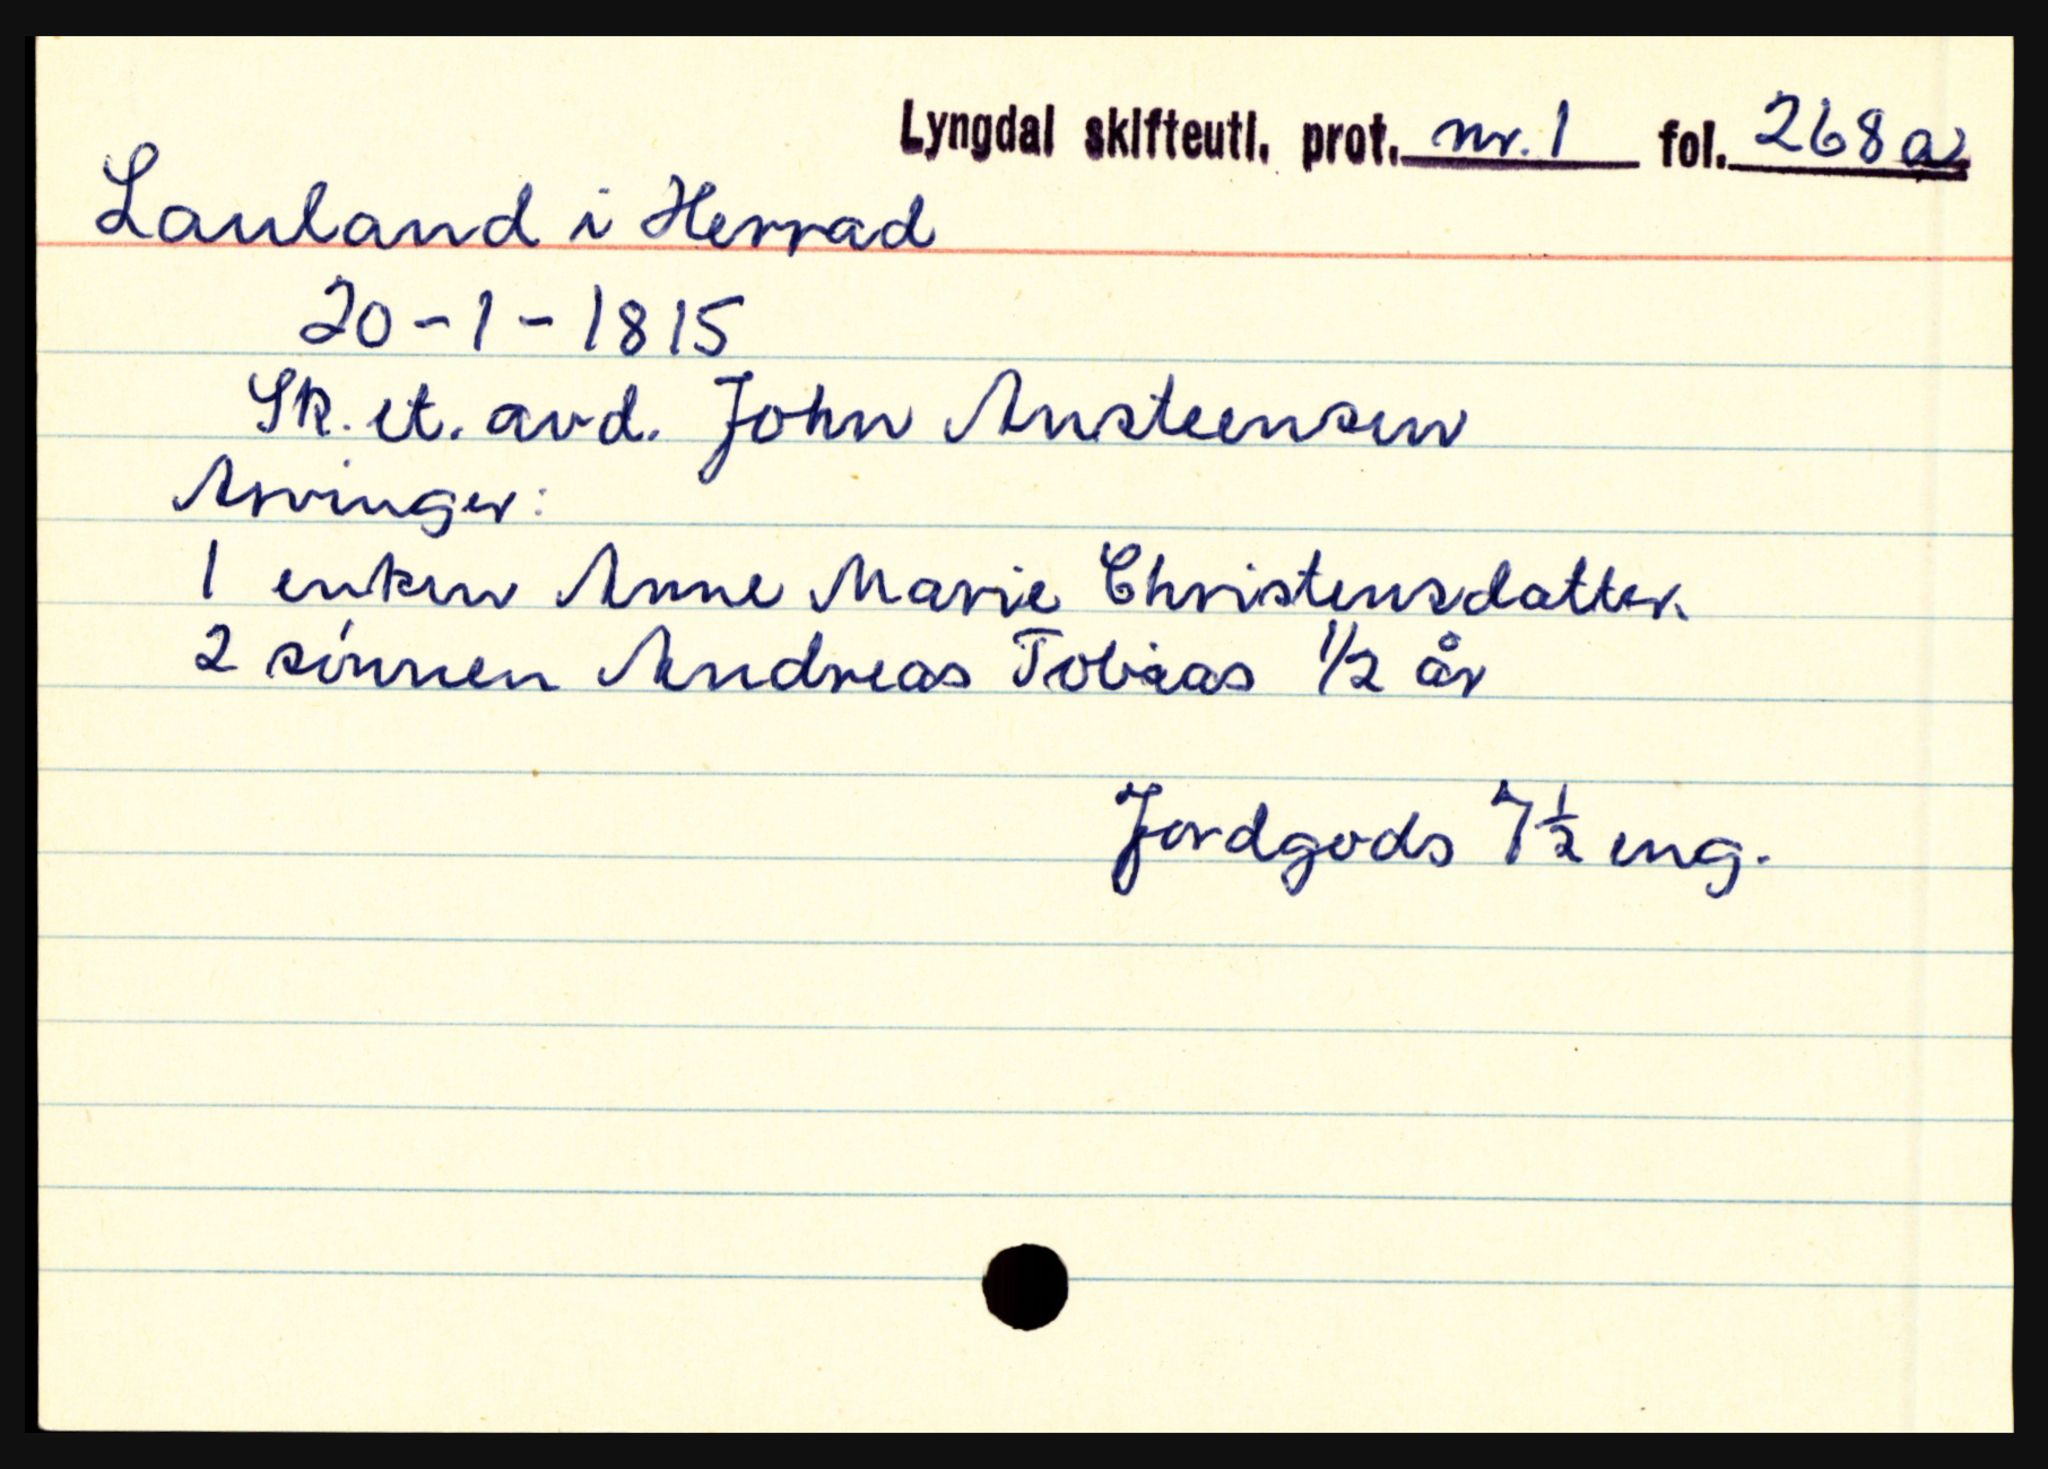 Lyngdal skifteutl. prot. nr. 1 fol. 268a
Lauland i Herrad
20-1-1815
Sk. et. avd. John Austeensen
Arvinger:
1 enken Anne Marie Christensdatter.
2 sønnen Andreas Tobias 1/2 år
Jordgods 7 1/2 eng.